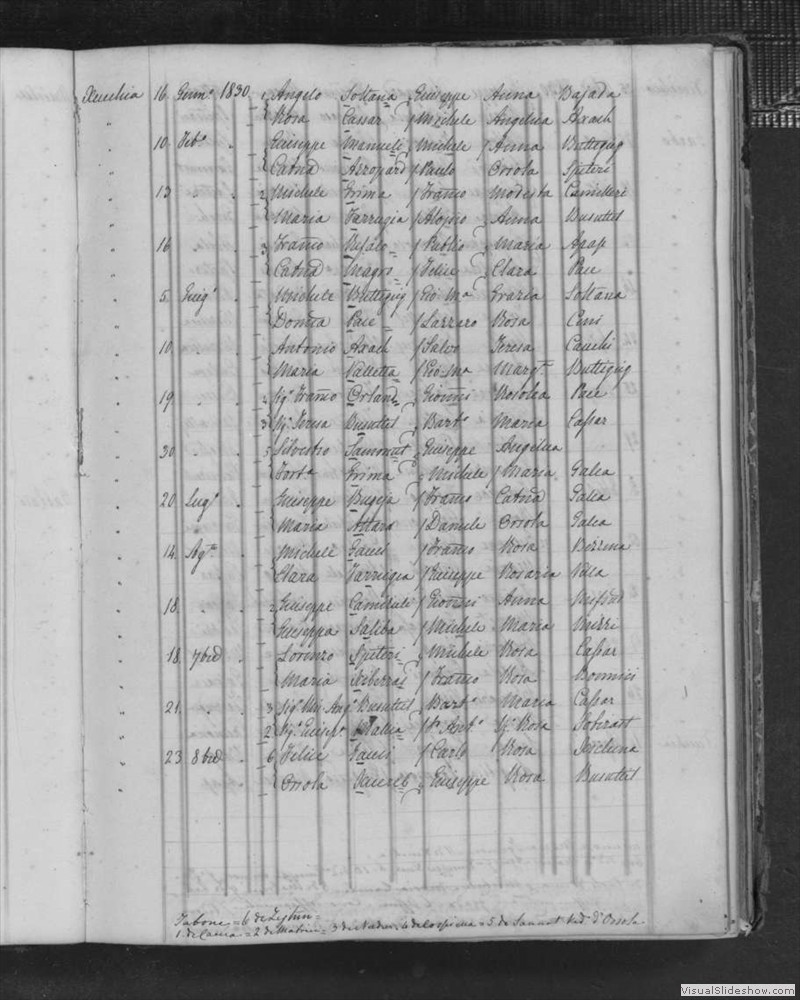 Xeuchia 16 Genn.o 1830. 1 Angelo Soltana Giuseppe Anna Bajada
" Rosa Cassar Michele Angelica Axach
" 10 Feb.o . Giuseppe Manueli Michele Anna Buttigieg
" Catna Azzopard Paulo Orsola Spiteri
" 13 " . 2 Michele Grima Franco Modesta Camilleri
" Maria Farrugia Aloysio Anna Busuttil
" 16 " . Franco Publio Maria Agap
" Catna Magro Felice Clara Pace
" 5 Giug.o . Michele Buttigieg Gio Ma Grazia Soltana
" Domca Pace Lazzaro Rosa Cini
" 10 " . Antonio Axach Salvo Teresa Cauchi
" Maria Valletta Gio Ma Marg.ta Buttigieg
" 19 " . Sigr Franco Orland Gionni Rosolea Pace
" 3 Sigra Teresa Busuttil Bart.o Maria Cassar
" 30 " . 5 Silvestro Giuseppe Angelica
" Grima Michele Maria Galea
" 20 Lug.o . Giuseppe Bugeja Franco Catna Galea
" Maria Attard Daniele Orsola Galea
" 14 Ag.to . Michele Gauci Franco Rosa
" Clara Farrugia Giuseppe Rosaria Vella
" 18 " . 2 Giuseppe Camilleri Gionni Anna Mifsud
" Giuseppa Saliba Michele Maria Mizzi
" 18 7bre . Lorenzo Spiteri Michele Rosa Cassar
" Maria Xiberras Franco Rosa Bonnici
" 21 " . 3 Sigr Ang.o Busuttil Bart.o Maria Cassar
" 2 Sigra Giusep.a Sr Ant.o Sra Rosa
" 23 8bre . 6 Felice Gauci Carlo Rosa Scicluna
" Orsola Giuseppe Rosa Busuttil
Tabone = 6 di Zejtun =
1 di Caccia = 2 di = 3 di Nadur = 4 = 5 di Sannat Ved. d'Orsola
VisualSlideshow.com